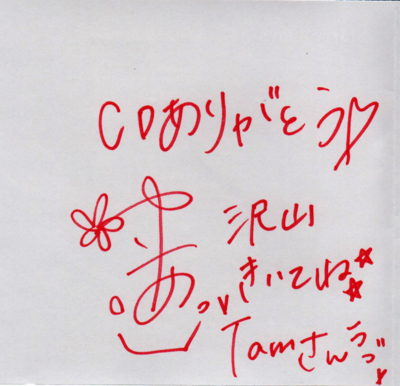 CDありがとう♡
沢山
きいてね☆☆
Tamさんラブ